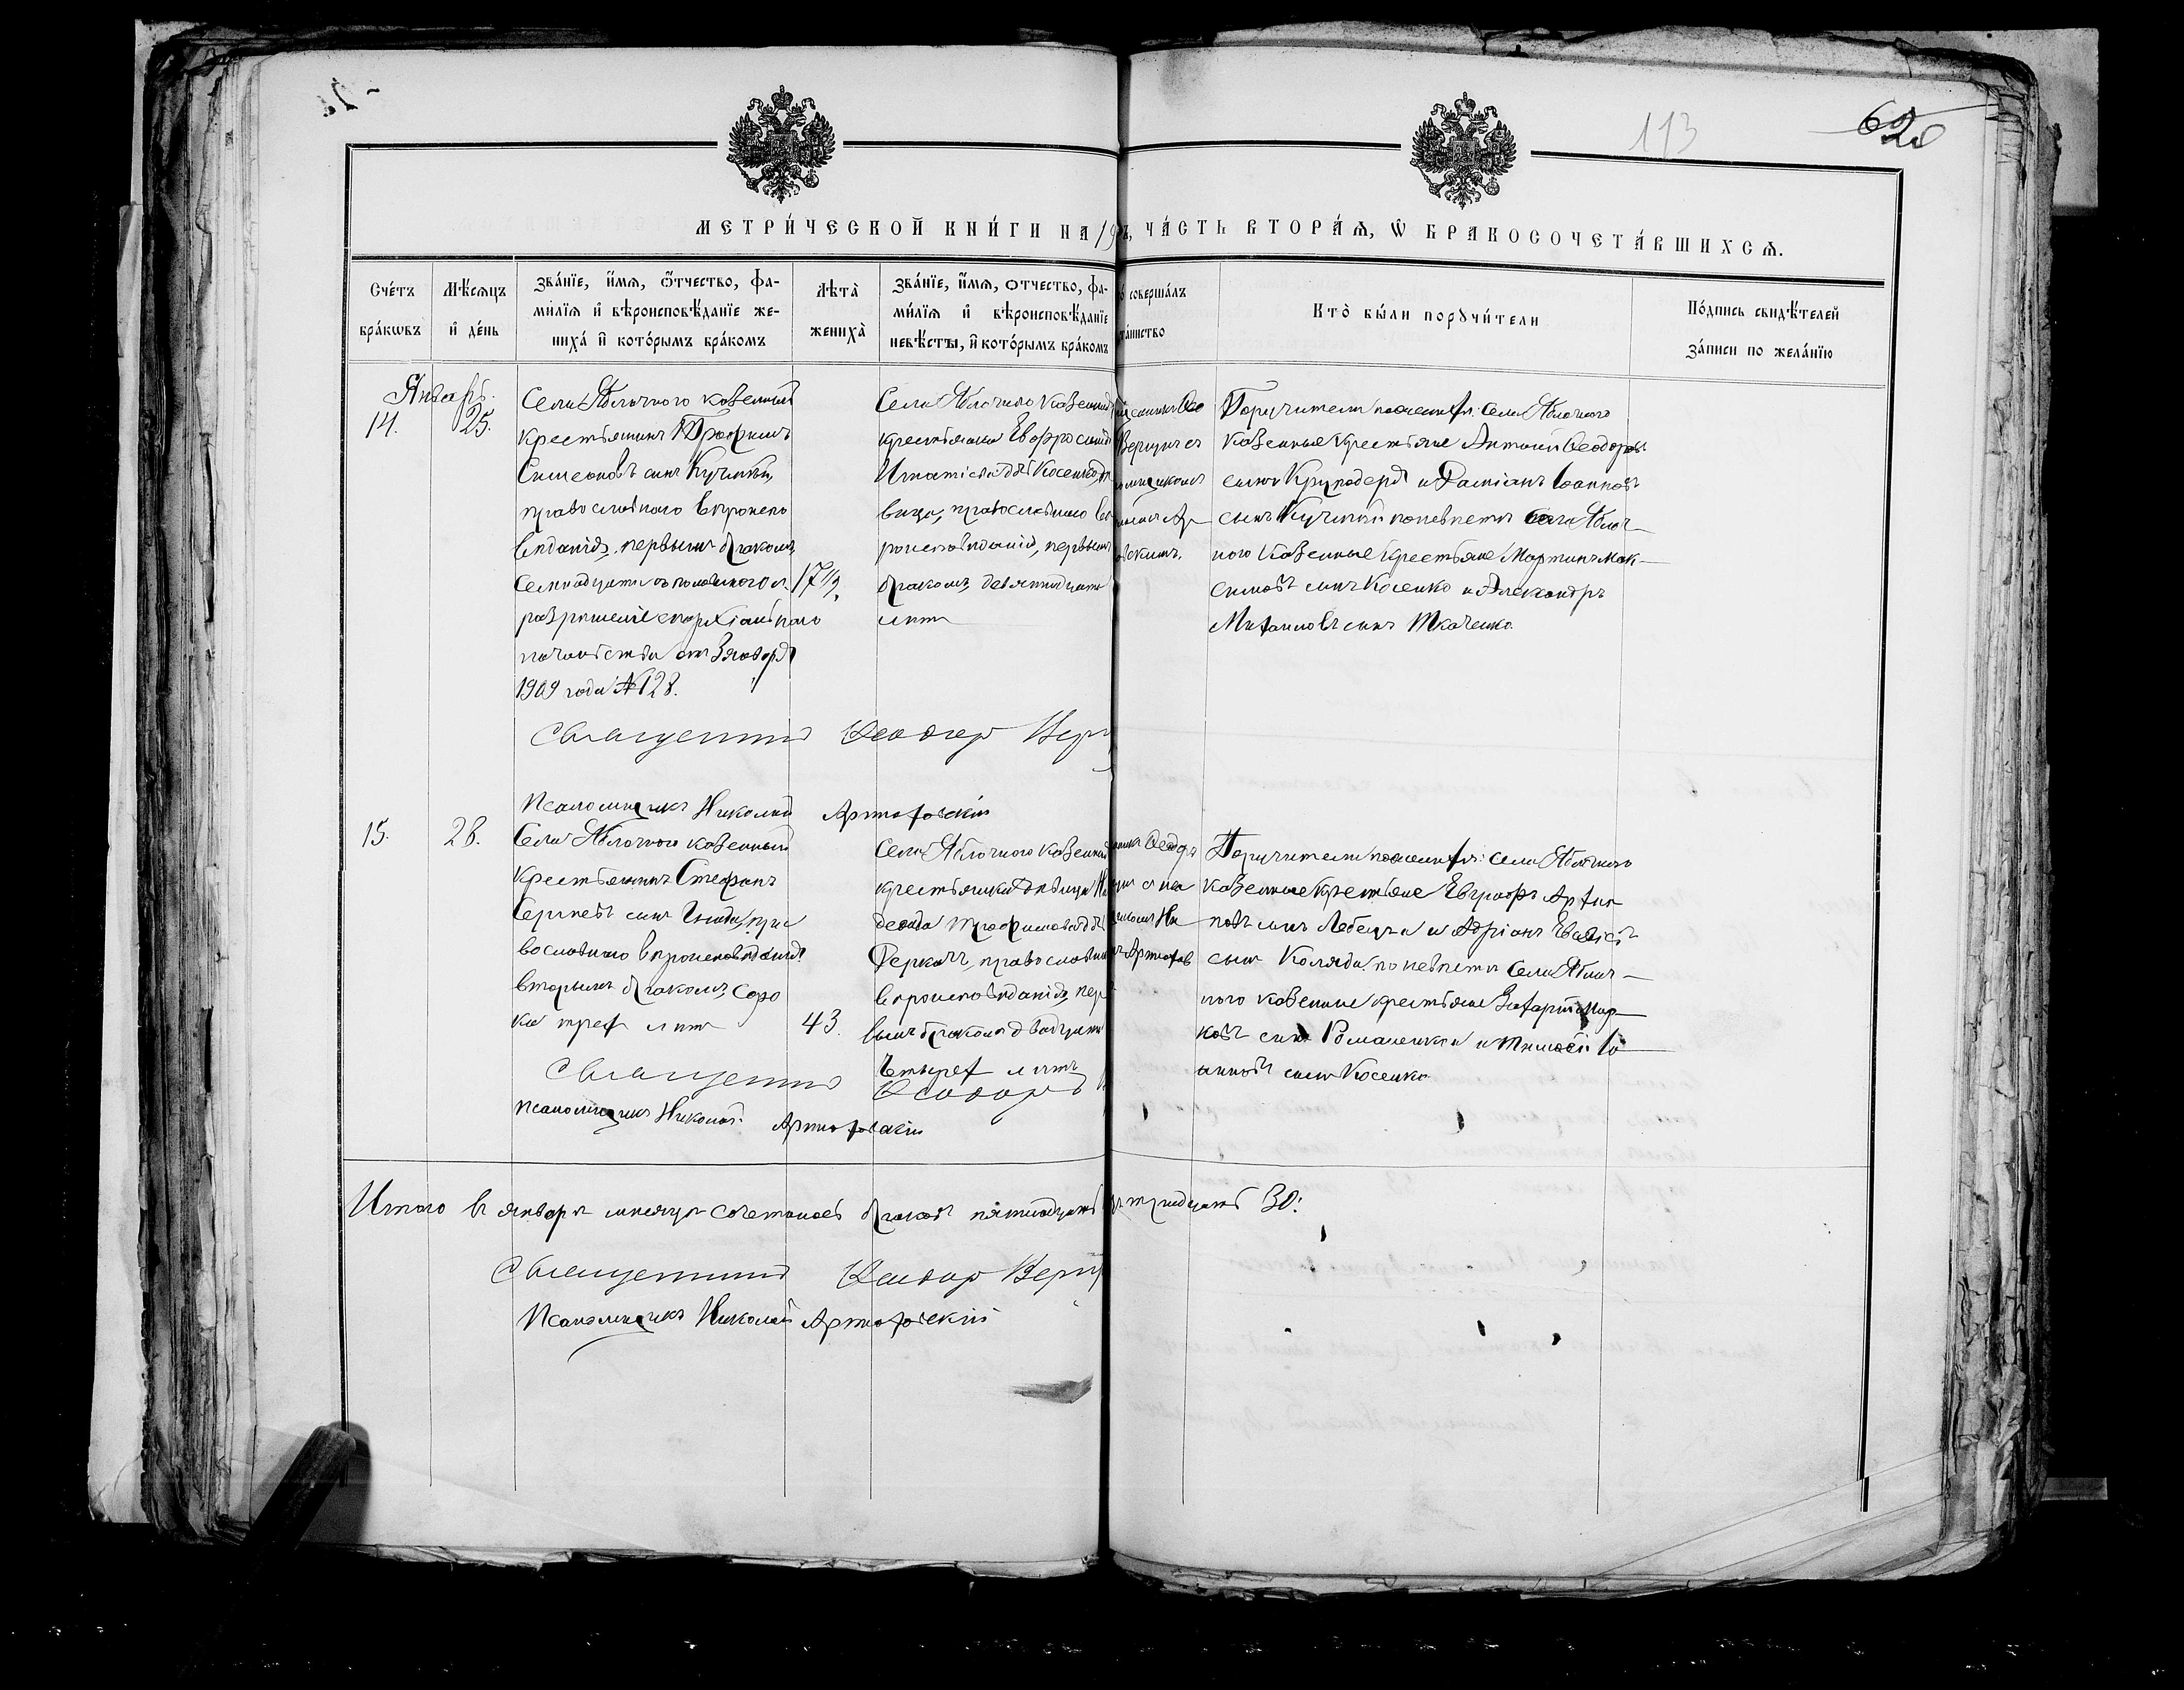 113
628
МЕТРИ́ЧЕСКОЙ КНИ́ГИ НА 19
Ъ, ЧА́СТЬ ВТОРА́Ѧ, Ѡ҆ БРАКОСОЧЕТА́ВШИХСѦ.
Сче́тъ бра́кѡвъ
Мѣ́сѧцъ и҆ де́нь
Зва́нїе, и҆́мѧ, ѻ҆́тчество, фа-
ми́лїѧ и҆ вѣроисповѣ́данїе же-
ниха́ и҆ кото́рымъ бра́комъ
Лѣта̀ жениха̀
Зва́нїе, и҆́мѧ, отчество, фа-
ми́лїѧ и҆ вѣроисповѣ́данїе
невѣ́сты, и҆ кото́рымъ бра́комъ
совершáлъ
та́инство
Кто̀ бы́ли порꙋчи́тели
По́дпись свидѣ́телей
за́писи по жела́нїю
Январь.
14.
25.
Села Яблочного казенный
крестьянинъ Трофимъ
Симеоновъ сынъ Кучинъ,
православнаго вѣроиспо
вѣданія, первымъ бракомъ,
семнадцати съ половиного л.
разрѣшеніе епархіальнаго
начальства отъ 3 января
1909 года № 128.
17 1/2
Села Яблочного казенная
крестьянка Евфросинія
Игнатіева дѣ Косенко, дѣ
вица, православнаго вѣ
роисповѣданія, первымъ
бракомъ, девятнадцати
лѣтъ
Порꙋчители по женихѣ: Села Яблочного
казенные крестьяне Антоній Ѳеодоровъ
сынъ Круподеря и Даміанъ Іоанновъ
сынъ Кучинъ; по невѣстѣ села Яблоч-
ного казенные крестьяне Мартинъ Мак-
симовъ сынъ Косенко и Александръ
Михаиловъ сынъ Ткаченко.
Священникъ Ѳеодоръ Верц
Псаломщикъ Николай Артюховскій
15.
28.
Села Яблочного казенный
крестьянинъ Стефанъ
Сергіевъ сынъ Гнида, пра
вославнаго вѣроисповѣданія
вторымъ бракомъ, соро
ка трех лѣтъ
43.
Села Яблочного казенная
крестьянка дѣвица
Трофимова дѣ
Деркачъ, православнаго
вѣроисповѣданія, пер
вымъ бракомъ двадцати
четырех лѣтъ
Порꙋчители по женихѣ: села Яблочного
казенные крестьяне Евграфъ Архи
повъ сынъ Лебедь и Адріанъ
сынъ Коляда. по невѣстѣ Села Яблоч-
ного казенные крестьяне Захарій Мар
ковъ сынъ Романенко и Тимоѳей Іо
анновъ сынъ Косенко
Священникъ Ѳеодоръ
Псаломщикъ Николай Артюховскій
Итого въ январѣ мѣсяцѣ сочеталось браковъ пятнадцать
тридцать 30.
Священникъ Ѳеодоръ Верц
Псаломщикъ Николай Артюховскій